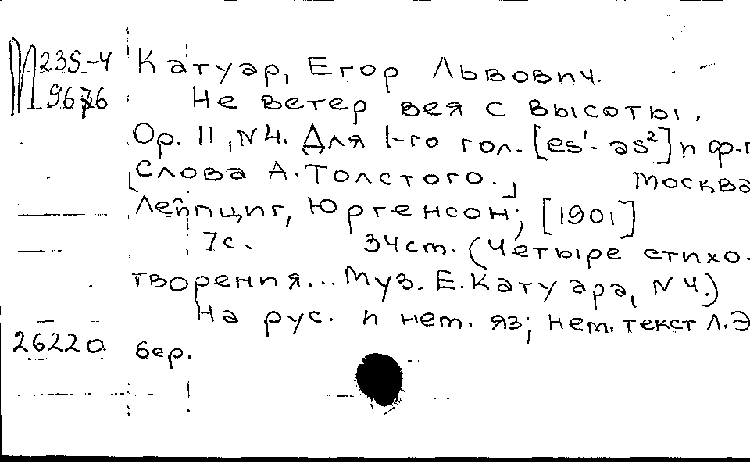 М 235-4 Катуар, Егор Львович.
Не ветер вея с высоты.
Ор. 11, N4. Для 1-го гол. [es¹- as²] и ф-п
[Слова А. Толстого.] Москва
Лейпциг, Юргенсон, [1901]
7с. 34см. (Четыре стихо-
творения... Муз. Е. Катуара, N 4.)
На рус. и нем. яз; нем. текст Л. Э
26220 бер.